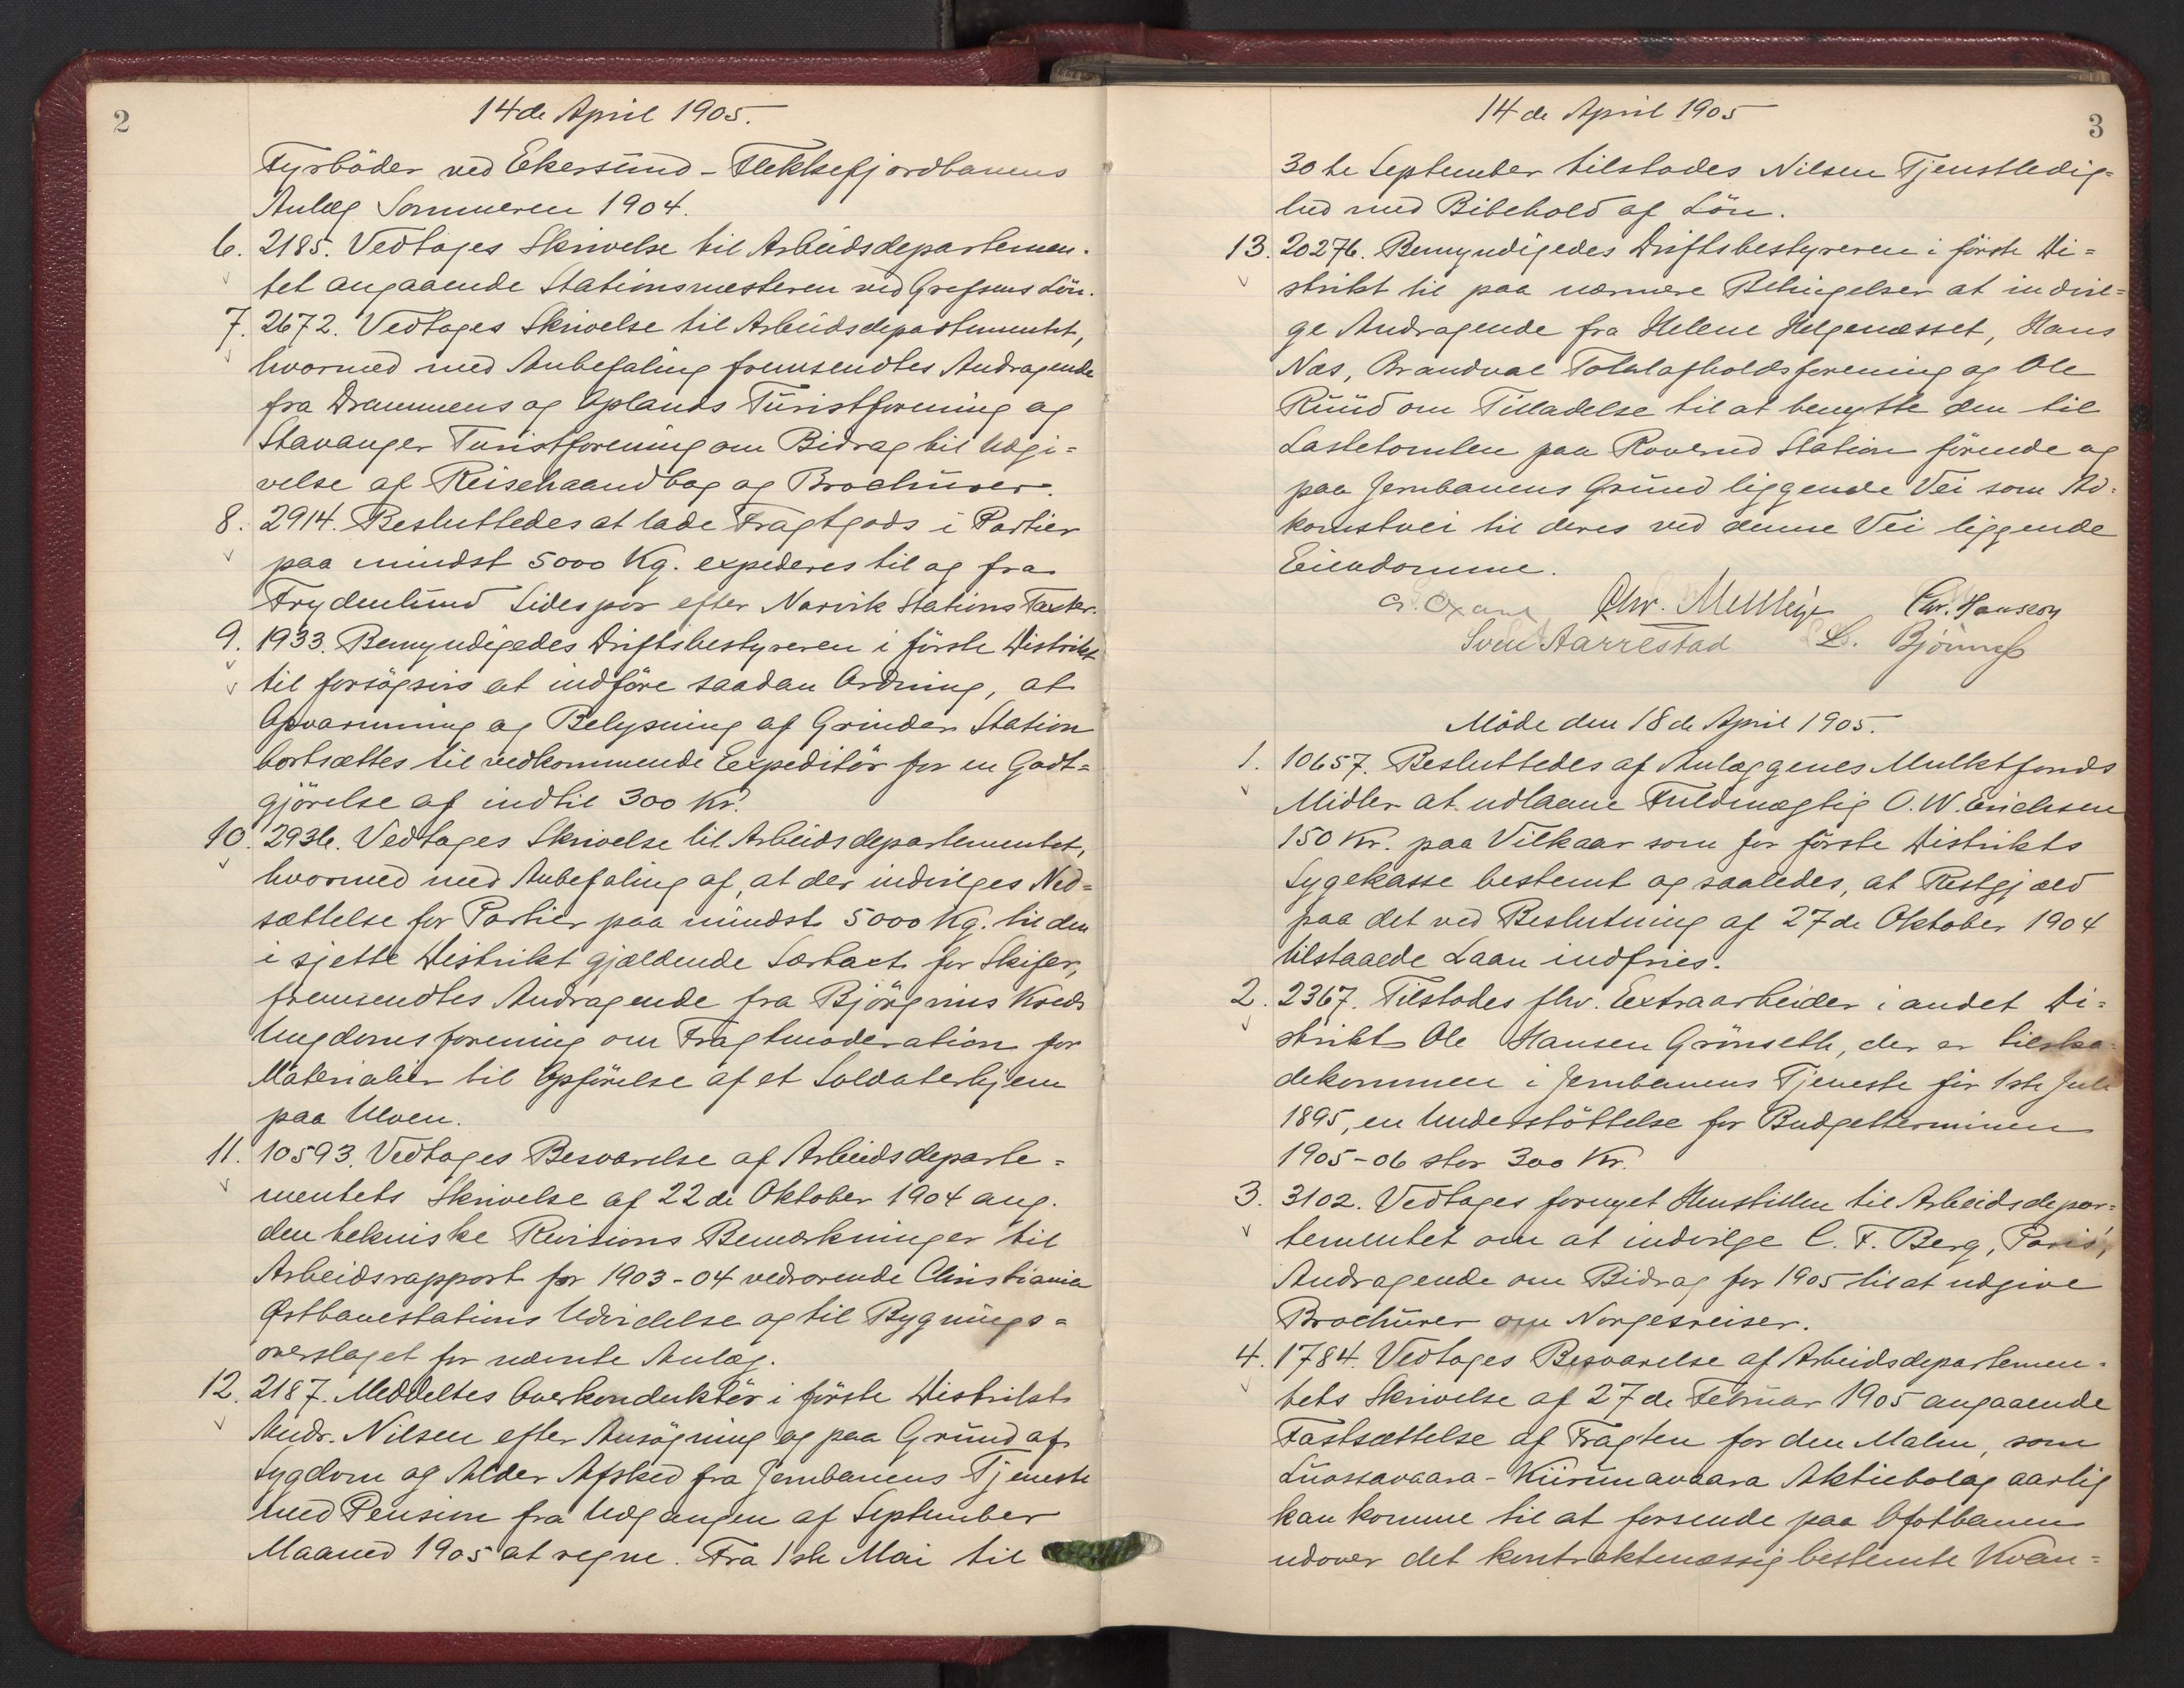 2
14de April 1905.
Fyrböder ved Ekersund - Flekkefjordbanens
Anlæg Sommeren 1904.
6. 2185. Vedtoges Skrivelse til Arbeidsdepartemen-
tet angaaende Stationsmesteren ved Grefsens Lön.
7. 2672. Vedtoges Skrivelse til Arbeidsdepartementet,
hvormed med Anbefaling fremsendtes Andragende
fra Drammens og Oplands Turistforening og
Stavanger Turistforening om Bidrag til Udgi=
velse af Reisehaandbog og Brochurer.
8. 2914. Besluttedes at lade Fragtgods i Partier
paa mindst 5000 Kg. expederes til og fra
Frydenlund Sidespor efter Narvik Stations Taxter.
9. 1933. Bemyndigedes Driftsbestyreren i förste Distrikt
til forsögsvis at indföre saadan Ordning, at
Opvarmning og Belysning af Grinder Station
bortsættes til vedkommende Expeditör for en Godt=
gjörelse af indtil 300 Kr.
10. 2936. Vedtoges Skrivelse til Arbeidsdepartementet,
hvormed med Anbefaling af, at der indvilges Ned=
sættelse for Partier paa mindst 5000 Kg. til den
i sjette Distrikt gjældende Særtaxt for Skifer,
fremsendtes Andragende fra Björgvins Kreds
Ungdomsforening om Fragtmoderation for
Materialier til Opförelse af et Soldaterhjem
paa Ulven.
11. 10593. Vedtoges Besvarelse af Arbeidsdeparte=
mentets Skrivelse af 22de Oktober 1904 ang.
den tekniske Revisions Bemærkninger til
Arbeidsrapport for 1903-04 vedrørende Christiania
Østbanestations Udvidelse og til Bygnings=
overslaget for nævnte Anlæg.
12. 2187. Meddeltes Overkonduktör i förste Distrikt
Andr. Nilsen efter Ansögning og paa Grund af
Sygdom og Alder Afsked fra Jernbanens Tjeneste
med Pension fra Udgangen af September
Maaned 1905 at regne. Fra 1ste Mai til
3
14de April 1905
30te September tilstodes Nilsen Tjenstledig=
hed med Bibehold af Lön.
13. 20276. Bemyndigedes Driftsbestyreren i förste Di=
strikt til paa nærmere Betingelser at indvil=
ge Andragende fra Helene Helgenæsset, Hans
Næs, Brandval Totalafholdsforening og Ole
Ruud om Tilladelse til at benytte den til
Lastetomten paa Roverud Station förende og
paa Jernbanens Grund liggende Vei som Ad=
komstvei til deres ved denne Vei liggende
Eiendomme.
Chr. Chr. Hanssen
Svend Aarrestad L. Björnness
Möde den 18de April 1905.
1. 10657. Besluttedes af Anlæggenes Mulktfonds
Midler at udlaane Fuldmægtig O. W. Erichsen
150 Kr. paa Vilkaar som for förste Distrikts
Sygekasse bestemt og saaledes, at Restgjæld
paa det ved Beslutning af 27de Oktober 1904
tilstaaede Laan indfries.
2. 2367. Tilstodes fhv. Extraarbeider i andet Di=
strikt Ole Hansen Grönseth, der er tilska=
dekommen i Jernbanens Tjeneste för 1ste Juli
1895, en Understöttelse for Budgetterminen
1905-06 stor 300 Kr.
3. 3102. Vedtoges fornyet Henstillen til Arbeidsdepar=
tementet om at indvilge C. F. Berg, Paris',
Andragende om Bidrag for 1905 til at udgive
Brochurer om Norgesreiser.
4. 1784. Vedtoges Besvarelse af Arbeidsdepartemen-
tets Skrivelse af 27de Februar 1905 angaaende
Fastsættelse af Fragten for den Malm, som
Luossavaara-Kiirunavaara Aktiebolag aarlig
kan komme til at forsende paa Ofotbanen
udover det kontraktmæssig bestemte Kvan=